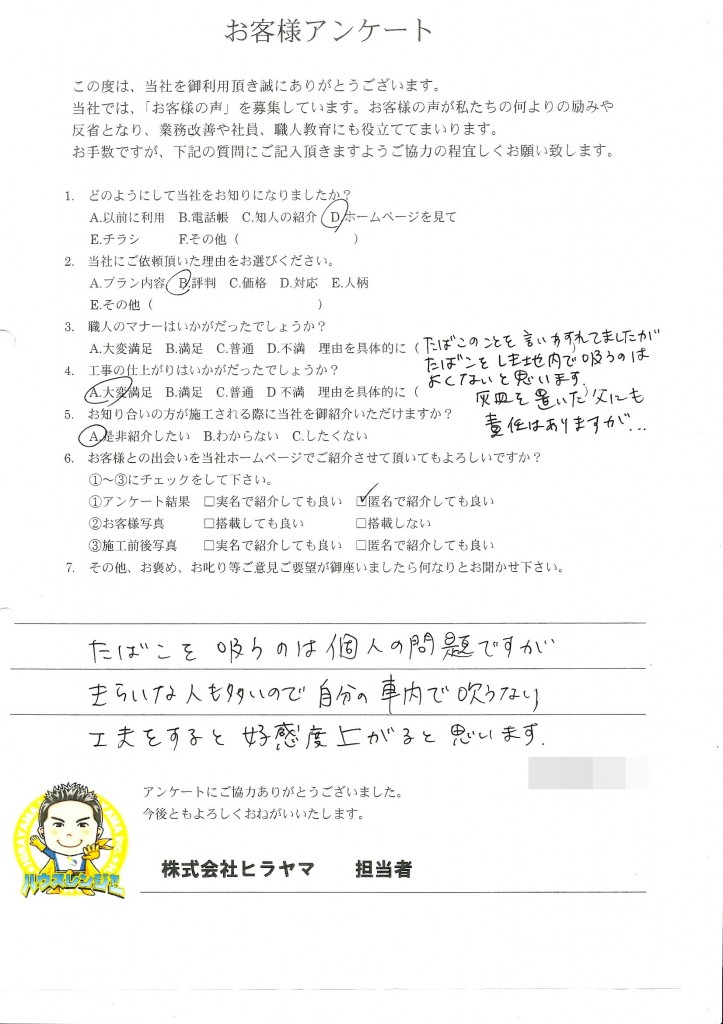 お客様アンケート
この度は、当社を御利用頂き誠にありがとうございます。
当社では、「お客様の声」を募集しています。お客様の声が私たちの何よりの励みや
反省となり、業務改善や社員、職人教育にも役立ててまいります。
お手数ですが、下記の質問にご記入頂きますようご協力の程宜しくお願い致します。
1. どのようにして当社をお知りになりましたか？
A.以前に利用 B.電話帳 C.知人の紹介 D.ホームページを見て
E.チラシ F.その他（ ）
2. 当社にご依頼頂いた理由をお選びください。
A.プラン内容 B.評判 C.価格 D.対応 E.人柄
E.その他（ ）
3. 職人のマナーはいかがだったでしょうか？
A.大変満足 B.満足 C.普通 D.不満 理由を具体的に（
たばこのことを言いわすれてましたが
たばこをしき地内で吸うのは
よくないと思います.
灰皿を置いた父にも
責任はありますが...
4. 工事の仕上がりはいかがだったでしょうか？
A.大変満足 B.満足 C.普通 D 不満 理由を具体的に（
5. お知り合いの方が施工される際に当社を御紹介いただけますか？
A.是非紹介したい B.わからない C.したくない
6. お客様との出会いを当社ホームページでご紹介させて頂いてもよろしいですか？
①～③にチェックをして下さい。
①アンケート結果 □実名で紹介しても良い ☑匿名で紹介しても良い
②お客様写真 □搭載しても良い □搭載しない
③施工前後写真 □実名で紹介しても良い □匿名で紹介しても良い
7. その他、お褒め、お叱り等ご意見ご要望が御座いましたら何なりとお聞かせ下さい。
たばこを吸うのは個人の問題ですが
きらいな人も多いので自分の車内で吸うなり
工夫をすると好感度上がると思います.
アンケートにご協力ありがとうございました。
今後ともよろしくおねがいいたします。
株式会社ヒラヤマ 担当者
ハウスレンジャー